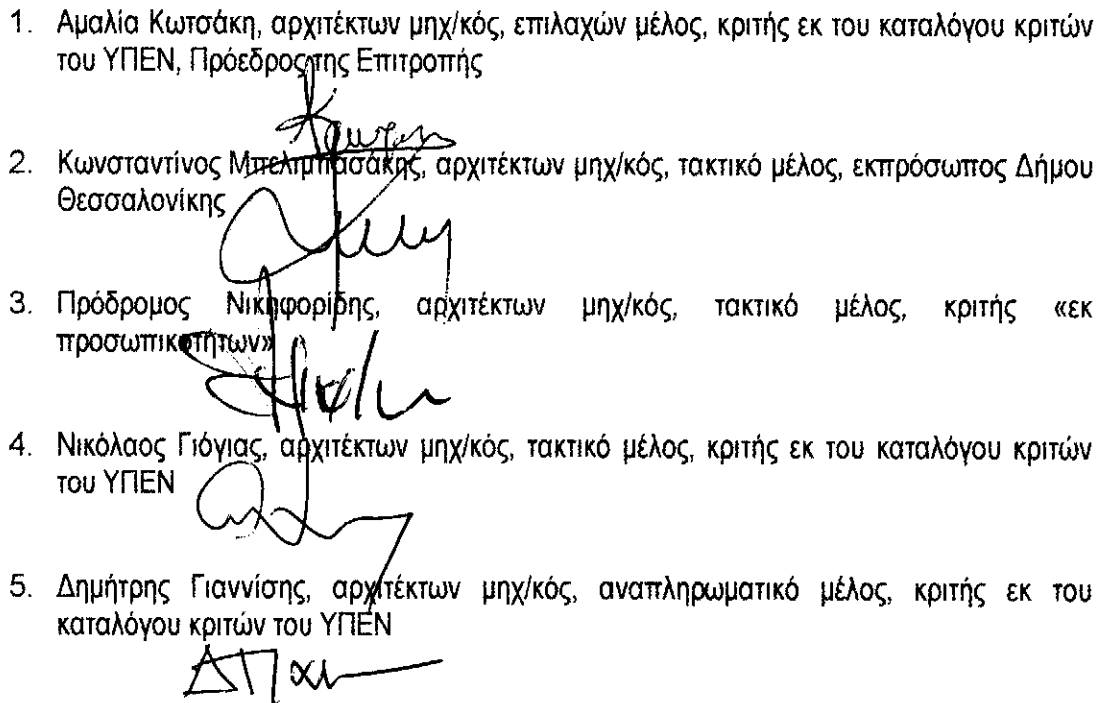 1. Αμαλία Κωτσάκη, αρχιτέκτων μηχ/κός, επιλαχών μέλος, κριτής εκ του καταλόγου κριτών
του ΥΠΕΝ, Πρόεδρος της Επιτροπής
2. Κωνσταντίνος Μπελιμπασάκης, αρχιτέκτων μηχ/κός, τακτικό μέλος, εκπρόσωπος Δήμου
Θεσσαλονίκης
3. Πρόδρομος Νικηφορίδης, αρχιτέκτων μηχ/κός, τακτικό μέλος, κριτής «εκ
προσωπικοτήτων»
4. Νικόλαος Γιόγιας, αρχιτέκτων μηχ/κός, τακτικό μέλος, κριτής εκ του καταλόγου κριτών
του ΥΠΕΝ
5. Δημήτρης Γιαννίσης, αρχιτέκτων μηχ/κός, αναπληρωματικό μέλος, κριτής εκ του
καταλόγου κριτών του ΥΠΕΝ